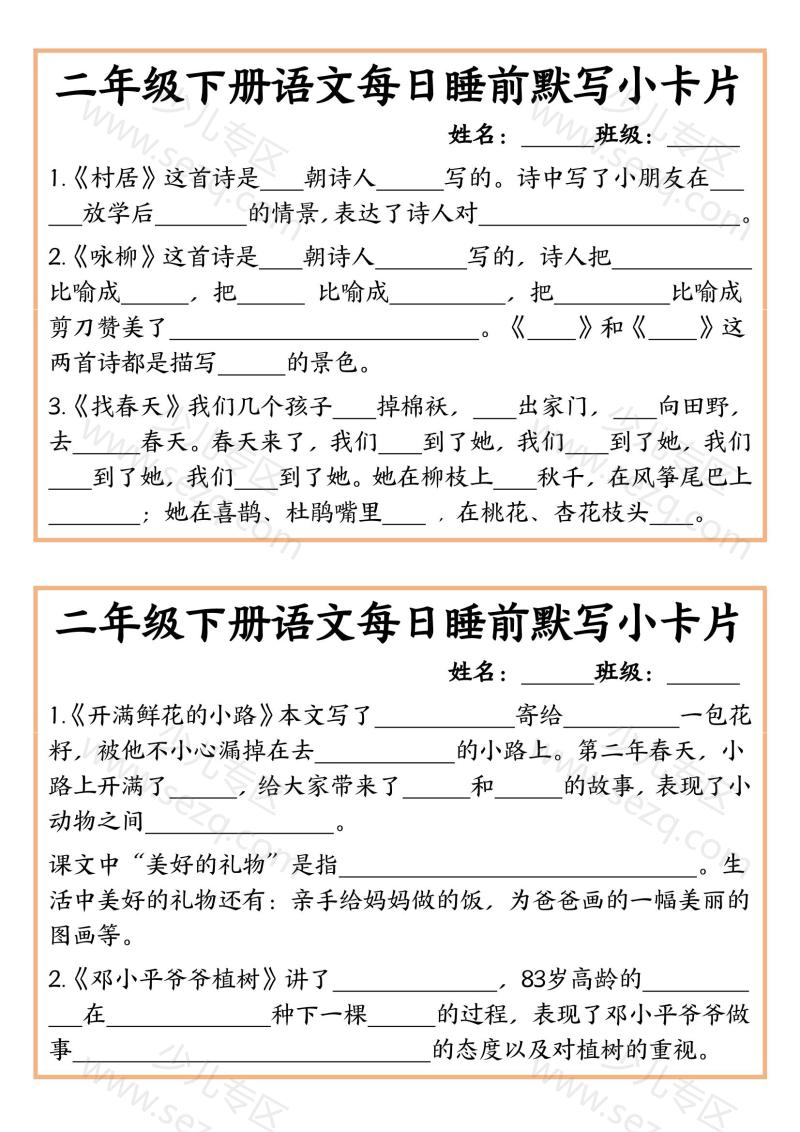 二年级下册语文每日睡前默写小卡片
姓名：______班级：______
1.《村居》这首诗是____朝诗人______写的。诗中写了小朋友在___
___放学后________的情景，表达了诗人对______________________。
2.《咏柳》这首诗是____朝诗人________写的，诗人把____________
比喻成______，把______ 比喻成__________，把__________比喻成
剪刀赞美了__________________________。《____》和《____》这
两首诗都是描写______的景色。
3.《找春天》我们几个孩子____掉棉袄，____出家门，____向田野，
去______春天。春天来了，我们____到了她，我们____到了她，我们
____到了她，我们____到了她。她在柳枝上____秋千，在风筝尾巴上
________；她在喜鹊、杜鹃嘴里____ ，在桃花、杏花枝头____。
二年级下册语文每日睡前默写小卡片
姓名：______班级：______
1.《开满鲜花的小路》本文写了____________寄给__________一包花
籽，被他不小心漏掉在去____________的小路上。第二年春天，小
路上开满了______，给大家带来了______和______的故事，表现了小
动物之间________________。
课文中“美好的礼物”是指______________________________。生
活中美好的礼物还有：亲手给妈妈做的饭，为爸爸画的一幅美丽的
图画等。
2.《邓小平爷爷植树》讲了______________，83岁高龄的_________
___在______________种下一棵______的过程，表现了邓小平爷爷做
事______________________________的态度以及对植树的重视。
少儿专区
www.sezq.com